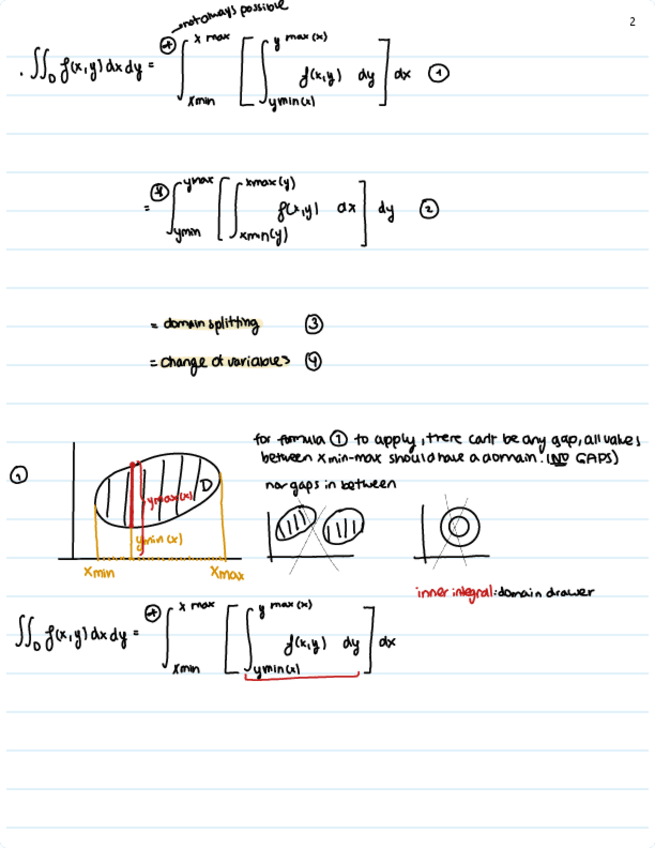 2
not always possible
. ∬_D f(x,y) dx dy = ⊛ ∫_{xmin}^{x max} [ ∫_{ymin(x)}^{y max(x)} f(x,y) dy ] dx ①
= ⊛ ∫_{ymin}^{ymax} [ ∫_{xmin(y)}^{xmax(y)} f(x,y) dx ] dy ②
= domain splitting ③
= change of variables ④
for formula ① to apply, there can't be any gap, all values
between xmin-max should have a domain. (NO GAPS)
① nor gaps in between
D
ymax(x)
ymin(x)
xmin xmax
inner integral: domain drawer
∬_D f(x,y) dx dy = ⊛ ∫_{xmin}^{x max} [ ∫_{ymin(x)}^{y max(x)} f(x,y) dy ] dx